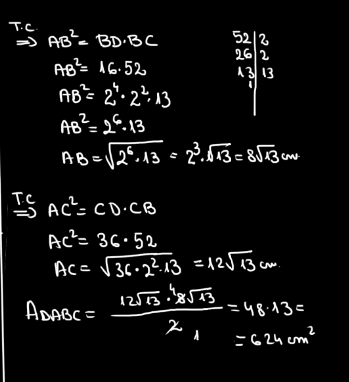 T.C.
⇒ AB² = BD·BC
AB² = 16·52
AB² = 2⁴·2²·13
AB² = 2⁶·13
AB = √(2⁶·13) = 2³·√13 = 8√13 cm
52 | 2
26 | 2
13 | 13
1
T.C
⇒ AC² = CD·CB
AC² = 36·52
AC = √(36·2²·13) = 12√13 cm.
A_DABC = (12√13 · ⁴8√13) / 2 ₁ = 48·13 =
= 624 cm²